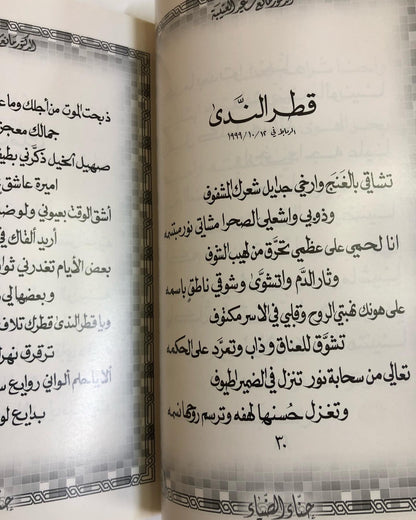 قطر الندى
الرباط في ١٩٩٩/١٠/١٢
تشاقي بالغنج وارخي جدايل شعرك المشفوف
وذوبي واشعلي الصحرا مشاتي نور مبتسمه
انا لحمي على عظمي تحرق من لهيب الشوف
وثار الدم واتشوى وشوقي ناطق باسمه
على هونك نمبتي الروح وقلبي في الاسر مكتوف
تشوق للعناق وذاب وتمرد على الحكمه
تعالي من سحابة نور تنزل في الضمير اطيوف
وتغزل حسنها لهفه وترسم روحها نسمه
٣٠
حناي الضناي
ذبحت الموت من أجلك وما
جمالك معجز
صهيل الخيل ذكرني بطيف
اميرة عاشق
أشق الوقت بعيوني ولو
أريد ألقاك في
بعض الأيام تغدرني
وبعضها لي
ويا قطر الندى قطرك تلاف
ترقرق نهر
ألا يا حلم ألواني روايع
بدايع لو